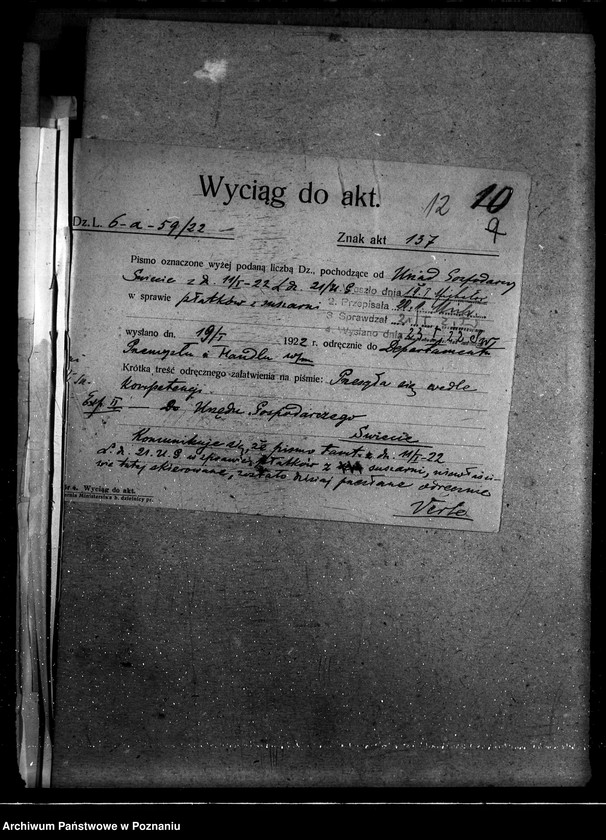 Wyciąg do akt.
12 10
9
Dz. L. 6-a-59/22
Znak akt 137
Pismo oznaczone wyżej podaną liczbą Dz., pochodzące od Urząd Gospodarczy
Świecie z d. 11/I-22 L. dz. 21/U. G.
doszło dnia 18.I.
w sprawie płatków z suszarni
2. Przepisała
3. Sprawdzał
4. Wysłano dnia
wysłano dn. 19/I 1922 r. odręcznie do Departamentu
Przemysłu i Handlu w/m
Krótka treść odręcznego załatwienia na piśmie: Przesyła się wedle
kompetencji.
Exp II — Do Urzędu Gospodarczego
Świecie
Komunikuje się, że pismo tamt. z dn. 11/I-22
L. d. 21. U. G w sprawie płatków z suszarni, niewłaści-
wie tutaj skierowane, zostało dzisiaj przesłane odręcznie
Wyciąg do akt.
Ministerstwa b. dzielnicy pr.
Archiwum Państwowe w Poznaniu